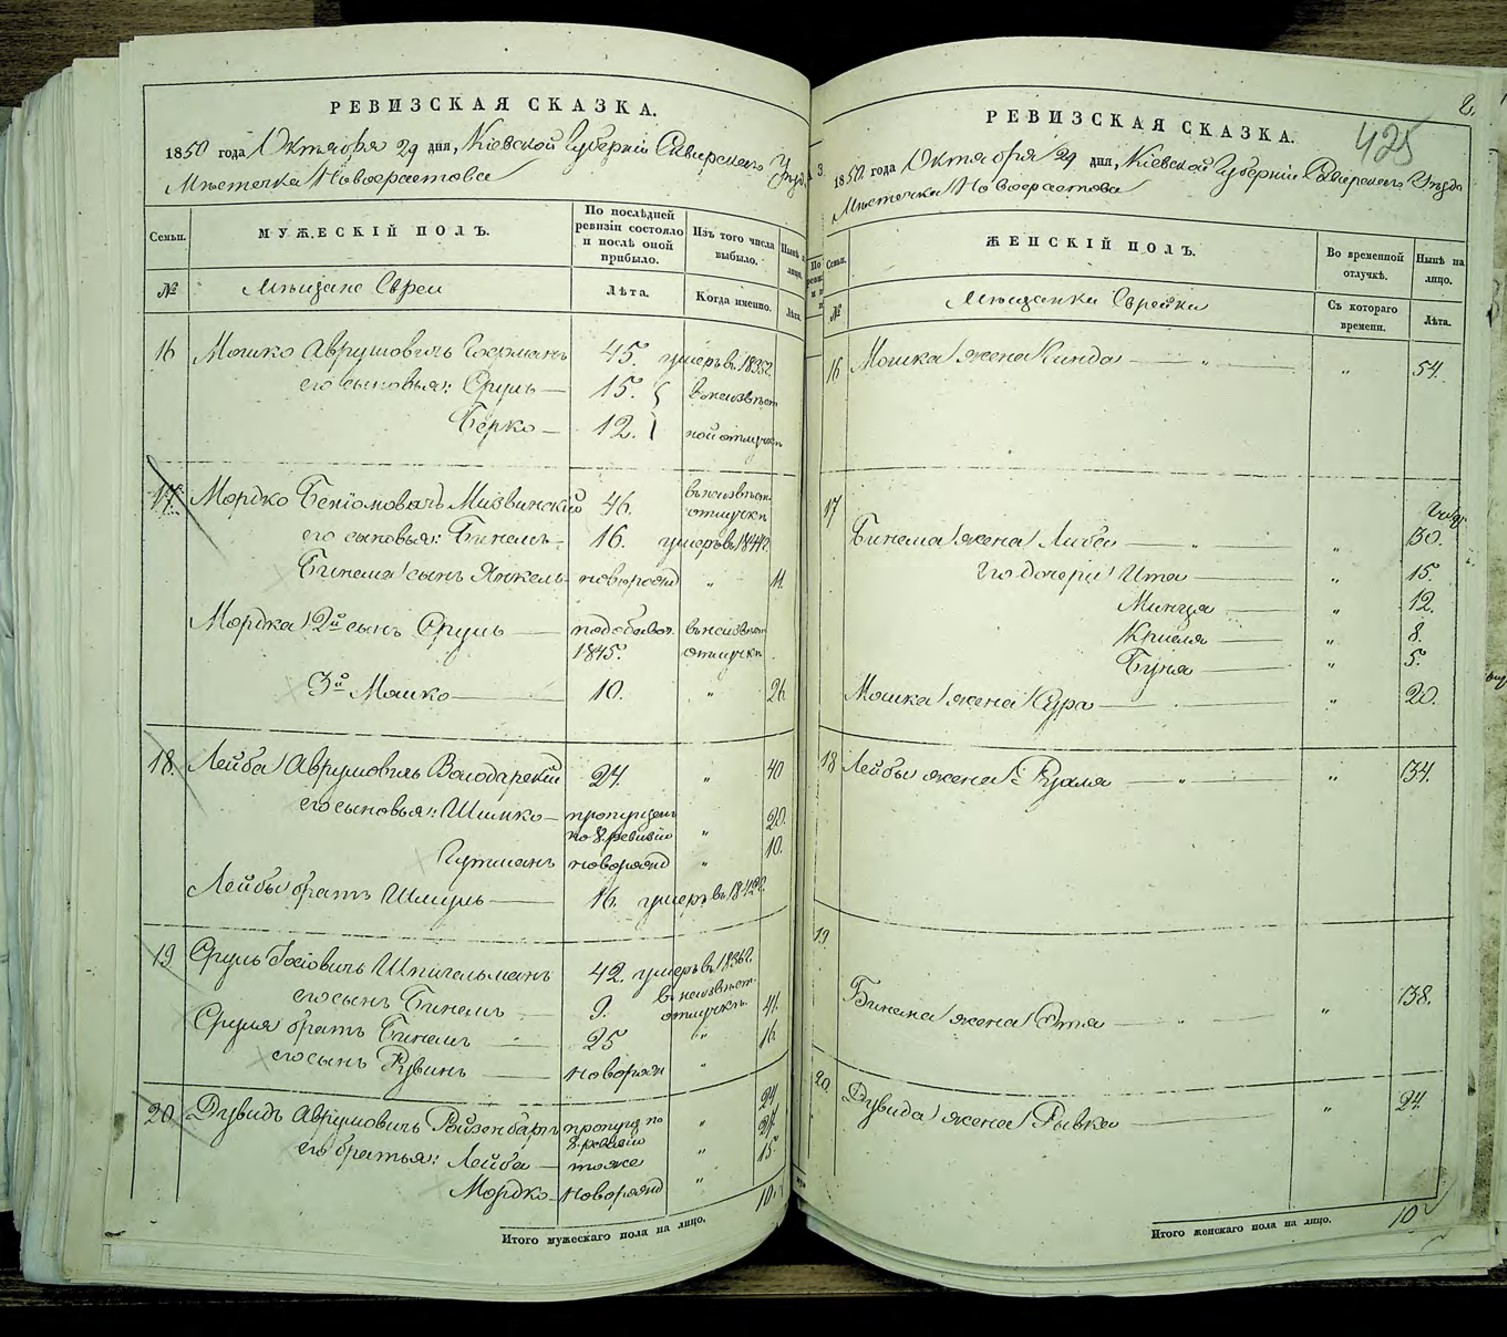 РЕВИЗСКАЯ СКАЗКА.
1850 года Октября 29 дня, Кіевской Губерніи Сквирскаго Уѣзда
Мѣстечка Новофастова
Семьи.
МУЖЕСКІЙ ПОЛЪ.
По послѣдней ревизіи состояло и послѣ оной прибыло.
Изъ того числа выбыло.
Нынѣ на лицо.
№
Мѣщане Евреи
Лѣта.
Когда именно.
Лѣта.
16 Мошко Аврумовичъ Гофманъ 45. умеръ въ 1835
его сыновья: Сруль 15. въ неизвѣст
Берко 12. ной отлучкѣ
17. Мордко Беніомовичъ Мизвинскій 46. въ неизвѣст. отлучкѣ
его сыновья: Бинемъ 16. умеръ въ 1844
Бинема сынъ Янкель новорожд " 11.
Мордка 2й сынъ Сруль 1845. въ неизвѣст отлучкѣ
3й Мошко 10. " 26
18. Лейба Аврумовичъ Володарскій 24. " 40
его сыновья: Шимко пропущенъ по 8 ревизіи " 20.
Гутманъ новорожд " 10.
Лейбы братъ Шмуль 16. умеръ въ 1842
19 Сруль Іосіовичъ Шпигельманъ 42. умеръ въ 1836
его сынъ Бинемъ 9. въ неизвѣст. отлучкѣ.
Сруля братъ Бинемъ 25 " 41.
его сынъ Рувинъ новорожд " 16.
20. Дувидъ Аврумовичъ Ройзенбаргъ пропущ по 8 ревизіи " 24
его братья: Лейба тоже "
Мордко новорожд " 15.
Итого мужескаго пола на лицо. 10.
РЕВИЗСКАЯ СКАЗКА.
425
1850. года Октября 29 дня, Кіевской Губерніи Сквирскаго Уѣзда
Мѣстечка Новофастова
Семьи.
ЖЕНСКІЙ ПОЛЪ.
Во временной отлучкѣ.
Нынѣ на лицо.
№
Мѣщанки Еврейки
Съ котораго времени.
Лѣта.
16 Мошка жена Кинда " " 54.
17
Бинема жена Либа " " 30.
Его дочери Ита " 15.
Минця " 12.
Крейля " 8.
Буня " 5.
Мошка жена Сура " 20.
18 Лейбы жена Рухля " " 34.
19
Бинема жена Этя " " 38.
20. Дувида жена Рывка " 24.
Итого женскаго пола на лицо. 10